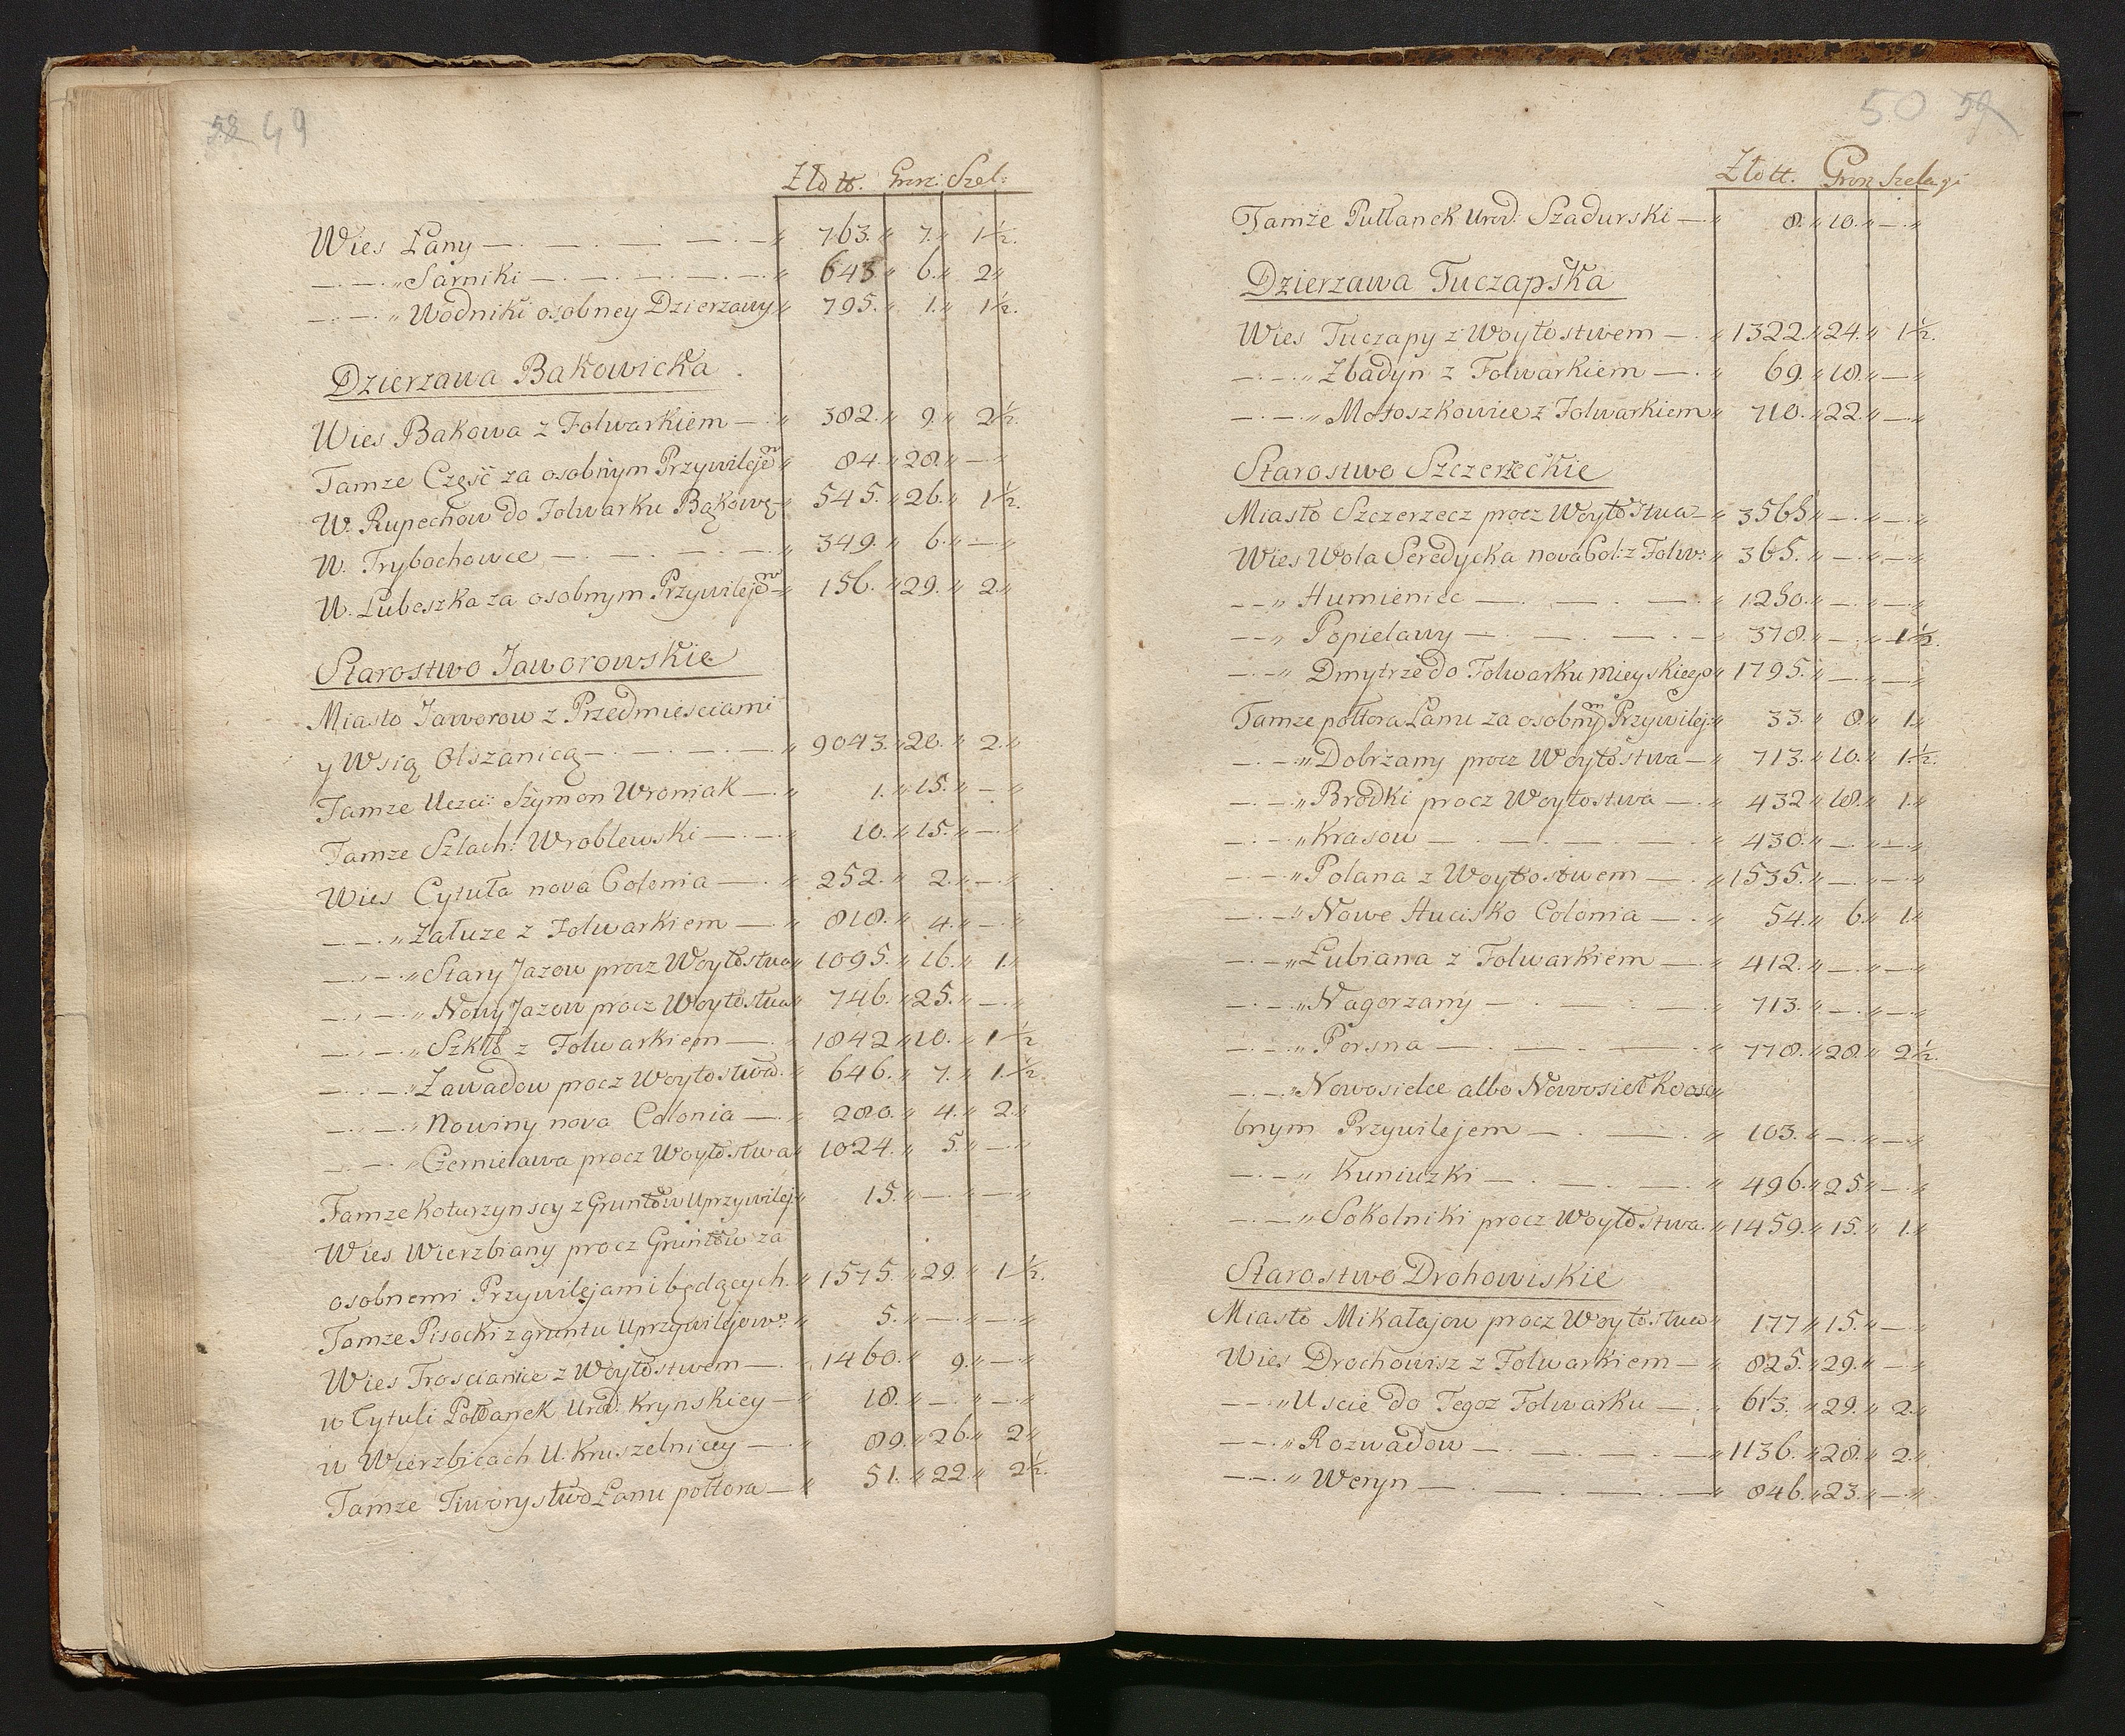 58 49
Złott. Grosz: Szel:
Wies Łany — . — . — . — „ 763. „ 7. „ 1½.
— . — . „ Sarniki — . — . — . — . „ 643 „ 6. „ 2 „
— . — . „ Wodniki osobney Dzierzawy „ 795. „ 1. „ 1½.
Dzierzawa Bakowicka .
Wies Bakowa z Folwarkiem — . „ 382. „ 9. „ 2½.
Tamze Część za osobnym Przywilejem „ 84. „ 28. „ — „
W. Rupechow do Folwarku Bąkowę „ 545. „ 26. „ 1½.
W. Trybochowce — . — . — . — . „ 349. „ 6. „ — „
W. Lubeszka za osobnym Przywilejem „ 156. „ 29. „ 2. „
Starostwo Jaworowskie
Miasto Jaworow z Przedmiesciami
y Wsią Olszanicą — . — . — . „ 9043. „ 20. „ 2. „
Tamze Uczci: Szymon Wroniak — . „ 1. „ 15. „ — „
Tamze Szlach: Wroblewski — . — . „ 10. „ 15. „ — . „
Wies Cytuła nova Colonia — . „ 252. „ 2. „ — . „
— . — . „ Załuze z Folwarkiem — . „ 818. „ 4. „ — . „
— . — . „ Stary Jazow procz Woytostwa „ 1095. „ 16. „ 1. „
— . — . „ Nowy Jazow procz Woytostwa „ 746. „ 25. „ — . „
— . — . „ Szkło z Folwarkiem — . „ 1842 „ 10. „ 1½
— . — . „ Zawadow procz Woytostwa. „ 646. „ 7. „ 1.½.
— . — . „ Nowiny nova Colonia — . „ 280. „ 4. „ 2. „
— . — . „ Czernielawa procz Woytostwa „ 1024. „ 5. „ — . „
Tamze Koturzynscy z Gruntow Uprzywilej „ 15. „ — . „ — „
Wies Wierzbiany procz Gruntow za
osobnemi Przywilejami będących. „ 1575. „ 29. „ 1½.
Tamze Pisocki z gruntu Uprzywilejow: „ 5. „ — . „ — . „
Wies Troscianice z Woytostwem — . „ 1460. „ 9. „ — . „
w Cytuli Połłanek Urod. Krynskiey — „ 18. „ — . „ — . „
w Wierzbicach U. Kruszelnicey — . „ 89. „ 26. „ 2 „
Tamze Tiworystwo Łanu połtora — „ 51. „ 22. „ 2½.
50 59
Złott. Grosz Szelągi
Tamze Pułłanek Urod: Szadurski — „ 8. „ 10. „ — . „
Dzierzawa Tuczapska
Wies Tuczapy z Woytostwem — . „ 1322. „ 24. „ 1½.
— . — . „ Zbadyn z Folwarkiem — . „ 69. „ 18. „ — . „
— . — . „ Mołoszkowice z Folwarkiem „ 710. „ 22. „ — . „
Starostwo Szczerzeckie
Miasto Szczerzecz procz Woytostwa „ 3565 „ — . „ — . „
Wies Wola Seredycka nova Col: z Folw: „ 365. „ — . „ — . „
— — „ Humieniec — . — . — . „ 1250. „ — . „ — . „
— — „ Popielawy — . — . — . „ 378. „ — . „ 1½.
— . — „ Dmytrze do Folwarku Mieyskiego „ 1795. „ — . „ — . „
Tamze połtora Łanu za osobnym Przywilej: „ 33. „ 8. „ 1. „
— . — „ Dobrzany procz Woytostwa — „ 713. „ 10. „ 1½.
— . — „ Brodki procz Woytostwa — . „ 432. „ 18. „ 1. „
— . — „ Krasow — . — . — . — . „ 430. „ — . „ — . „
— . — „ Polana z Woytostwem — . „ 1535. „ — . „ — . „
— . — „ Nowe Hucisko Colonia — . „ 54. „ 6. „ 1. „
— . — „ Łubiana z Folwarkiem — . „ 412. „ — . „ — . „
— . — „ Nagorzany — . — . — . „ 713. „ — . „ — . „
— . — „ Porsna — . — . — . „ 778. „ 28. „ 2½.
— . — „ Nowosielce albo Nowosiełko oso „
bnym Przywilejem — . — . „ 103. „ — . „ — . „
— . — „ Kuniuzki — . — . — . „ 496. „ 25. „ — . „
— . — „ Sokolniki procz Woytostwa. „ 1459. „ 15. „ 1. „
Starostwo Drohowiskie
Miasto Mikałajow procz Woytostwa „ 177 „ 15. „ — . „
Wies Drochowisz z Folwarkiem — „ 825. „ 29. „ — . „
— — . „ Uscie do Tegoz Folwarku — . „ 615. „ 29. „ 2. „
— — . „ Rozwadow — . — . — . — „ 1136. „ 28. „ 2. „
— — . „ Weryn — . — . — . — „ 846. „ 23. „ — . „